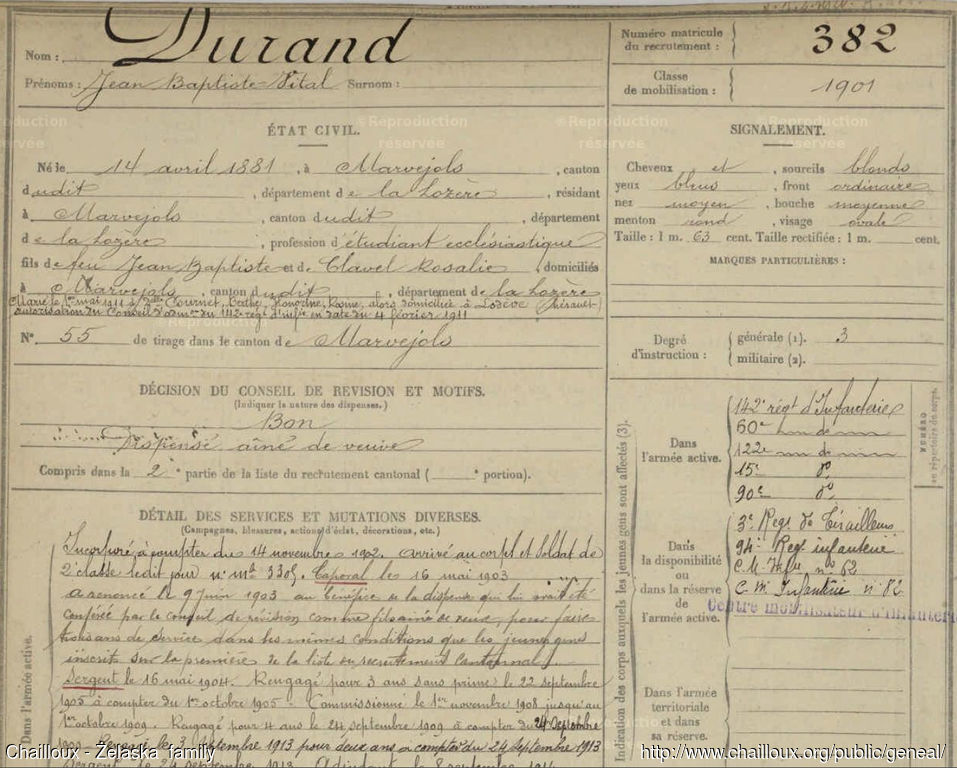 Nom : Durand
Prénoms : Jean Baptiste Vital Surnom :
Numéro matricule du recrutement : 382
Classe de mobilisation : 1901
ÉTAT CIVIL.
Né le 14 avril 1881, à Marvejols, canton
dudit, département de la Lozère, résidant
à Marvejols, canton dudit, département
de la Lozère, profession d'étudiant ecclésiastique
fils de feu Jean Baptiste et de Clavel Rosalie, domiciliés
à Marvejols, canton dudit, département de la Lozère
Marié le 1er mai 1911 à Delle Cournet, Berthe, Honorine, Rosine, alors domiciliée à Lodève (Hérault)
autorisation du Conseil d'admon du 142e régt d'infie en date du 4 février 1911
N° 55 de tirage dans le canton de Marvejols
SIGNALEMENT.
Cheveux et, sourcils blonds
yeux bleus, front ordinaire
nez moyen, bouche moyenne
menton rond, visage ovale
Taille : 1 m. 63 cent. Taille rectifiée : 1 m. cent.
MARQUES PARTICULIÈRES :
Degré d'instruction :
générale (1). 3
militaire (2).
DÉCISION DU CONSEIL DE REVISION ET MOTIFS.
(Indiquer la nature des dispenses.)
Bon
Dispensé aîné de veuve
Compris dans la 2e partie de la liste du recrutement cantonal ( e portion).
DÉTAIL DES SERVICES ET MUTATIONS DIVERSES.
(Campagnes, blessures, actions d'éclat, décorations, etc.)
Dans l'armée active.
Incorporé à compter du 14 novembre 1902. Arrivé au corps et soldat de
2e classe ledit jour n° mle 3305. Caporal le 16 mai 1903
a renoncé le 9 juin 1903 au bénéfice de la dispense qui lui avait été
conférée par le conseil de révision comme fils aîné de veuve, pour faire
trois ans de service dans les mêmes conditions que les jeunes gens
inscrits sur la première de la liste du recrutement cantonal.
Sergent le 16 mai 1904. Rengagé pour 3 ans sans prime le 22 septembre
1905 à compter du 1er octobre 1905 - Commissionné le 1er novembre 1908 jusqu'au
1er octobre 1909. Rengagé pour 4 ans le 24 septembre 1909 à compter du 24 septembre
septembre 1913 pour deux ans à compter du 24 septembre 1913
Sergent le 24 septembre 1913
Indication des corps auxquels les jeunes gens sont affectés (3).
NUMÉRO au répertoire du corps.
Dans l'armée active.
142e régt d'Infanterie
60e
122e
15e do
90e do
Dans la disponibilité ou dans la réserve de l'armée active.
3e Régt de Tirailleurs
94e Régt infanterie
C. M. Infie n° 82
C. M. Infanterie n° 82
Centre mobilisateur d'Infanterie
Dans l'armée territoriale et dans sa réserve.
©Reproduction réservée
Chailloux - Zelaska family
http://www.chailloux.org/public/geneal/